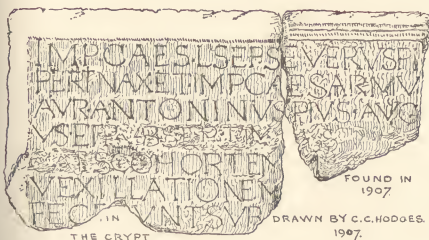 IMP·CAES·L·SEP·SEVERVS·PI
PERTINAX·ET·IMP·CAESAR·M
AVR·ANTONINVS·PIVS·AVG
VS·ET
HORTE
VEXILLATIONEM
FEC VNT·SVB
FOUND IN
1907.
IN
THE CRYPT
DRAWN BY C.C.HODGES.
1907.